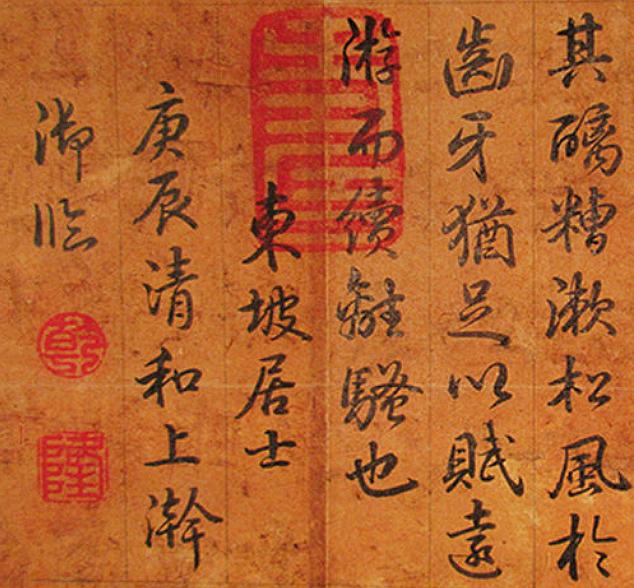 其醨糟漱松風於
齒牙猶足以賦遠
游而續離騷也
東坡居士
庚辰清和上澣
御臨
乾
隆